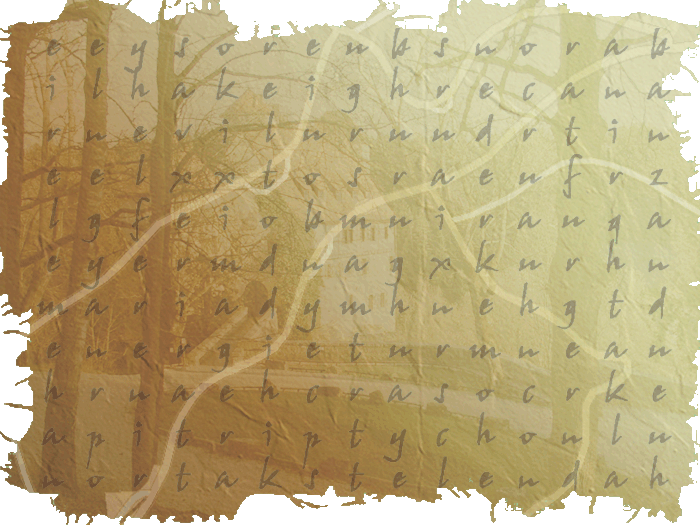 e e y s o r e n b s n o r a b
i l h a k e i g h r e c a n a
r n e v i l n r n n d r t i n
e e l x x t o s r a e n f r z
l g f e i o b m n i r a n q a
e y e r m d n a q x k n r h n
m a r i a d y m h n e h g t d
e n e r g i e t n r m n e a n
h r n a e h c r a s o c r k e
a p i t r i p t y c h o n l n
n o r t a k s t e l e n d a h